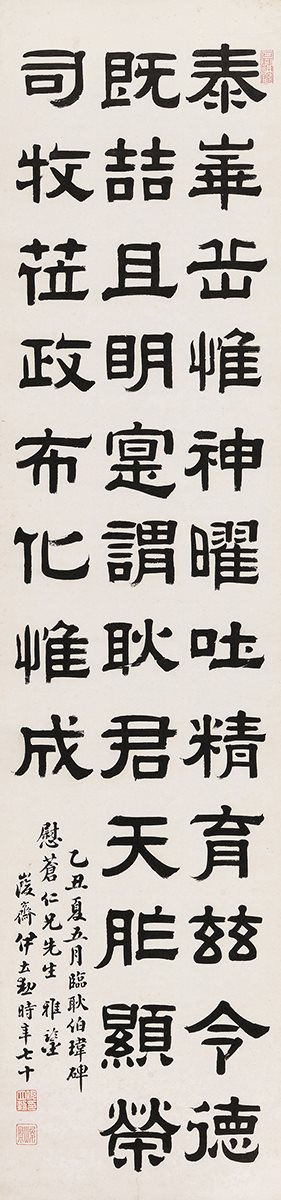 泰華岳惟神曜吐精育茲令德
既喆且明寔謂耿君天胙顯榮
司牧莅政布化惟成
乙丑夏五月臨耿伯瑋碑
慰蒼仁兄先生雅鑒
峻齋伊立勳時年七十